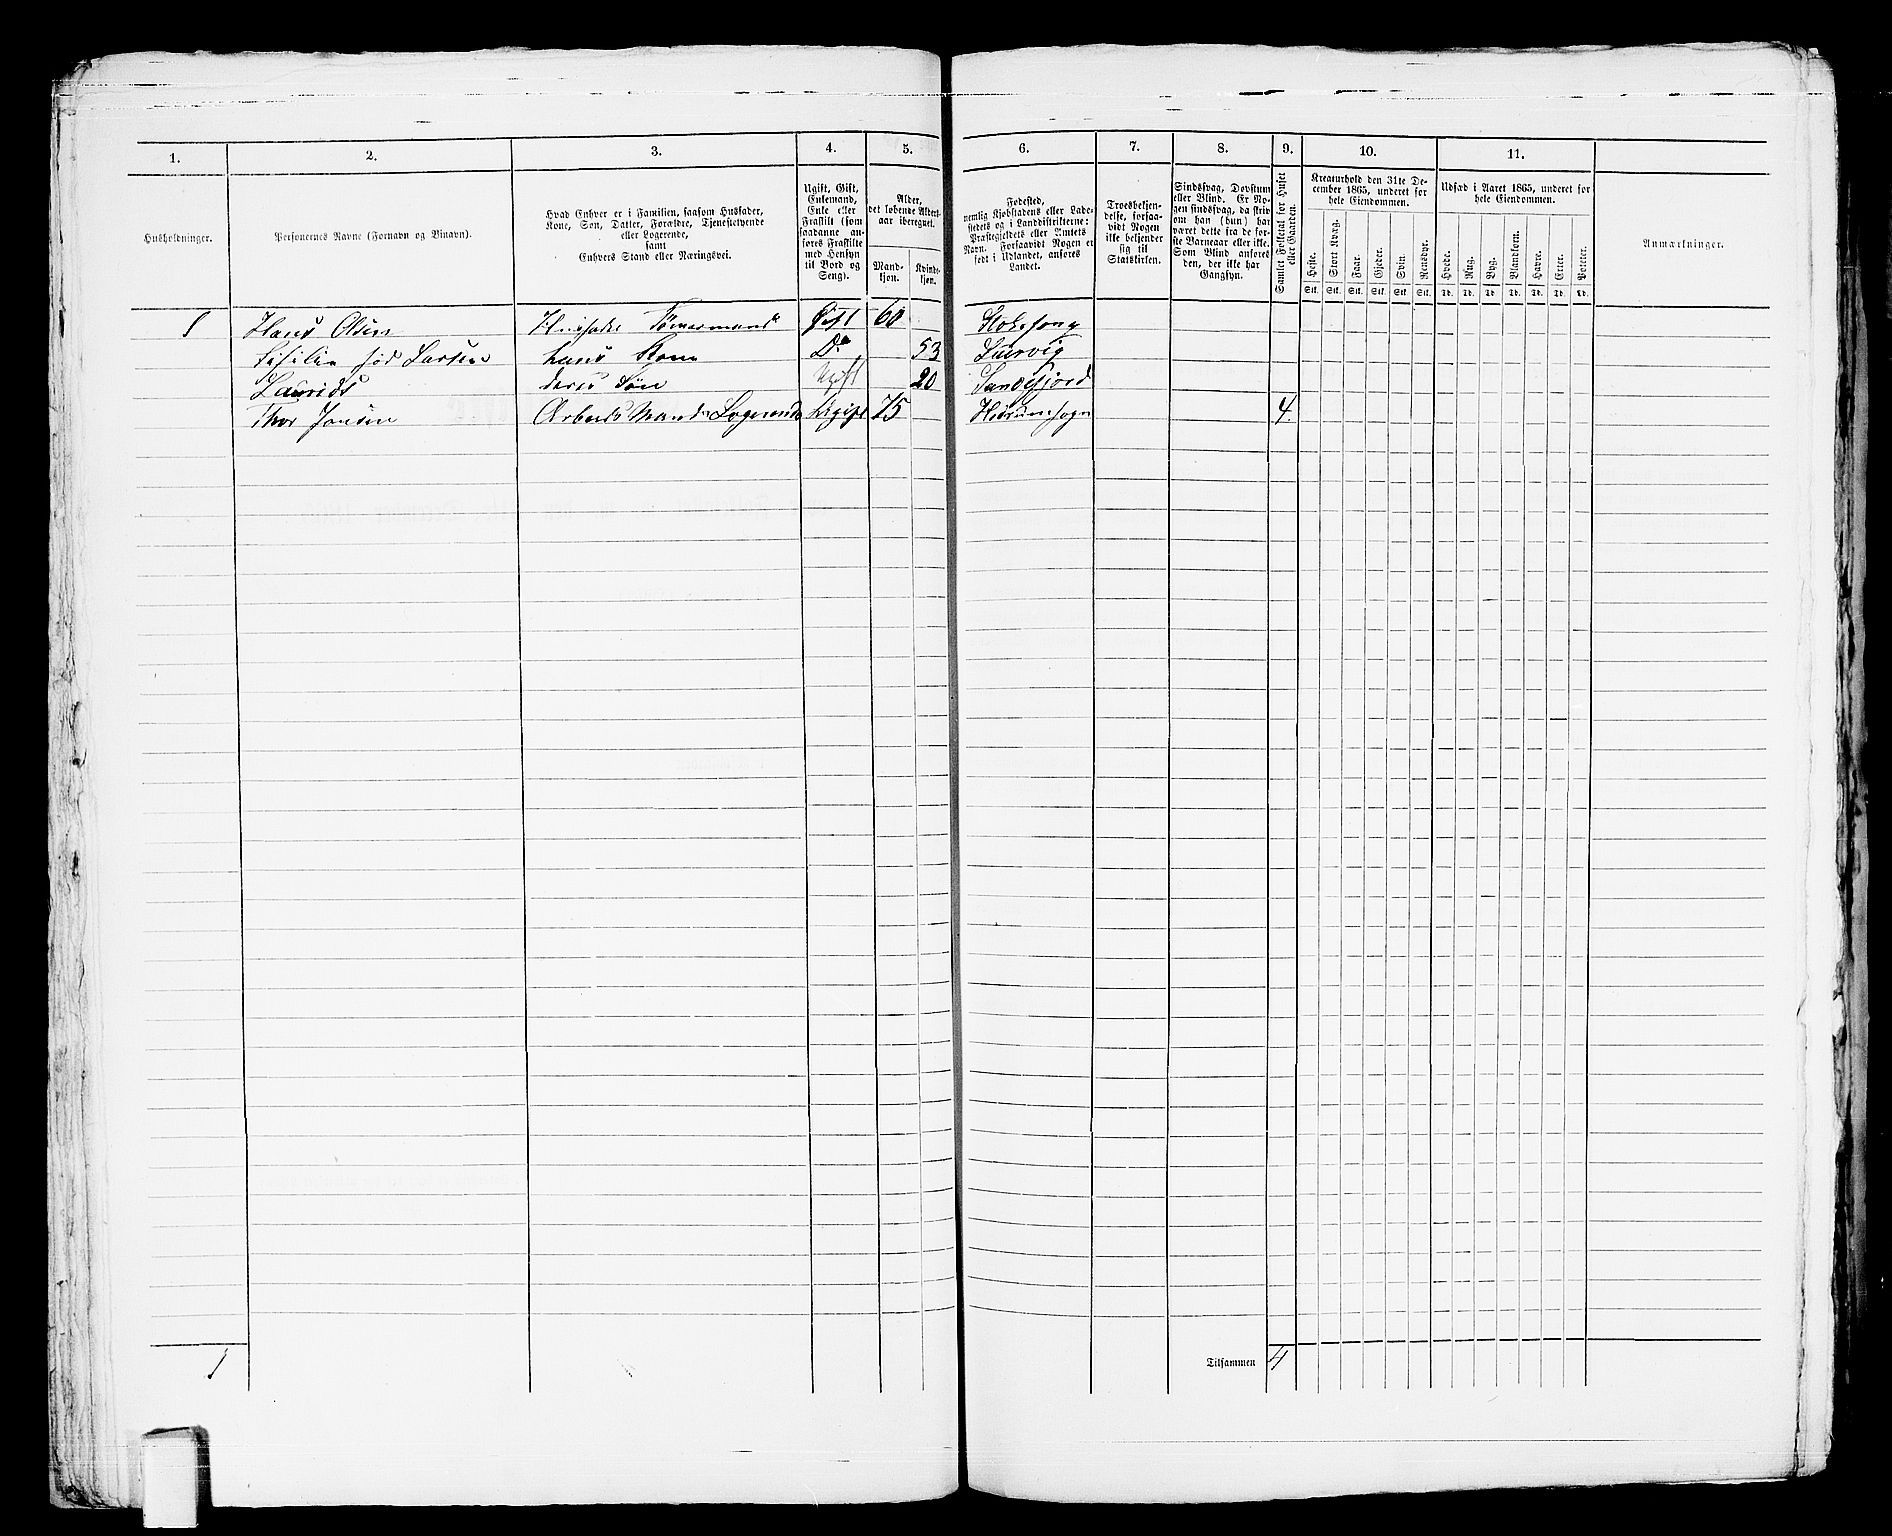 1. 2. 3. 4. 5. 6. 7. 8. 9. 10. 11.
Husholdninger.
Personernes Navne (Fornavn og Binavn).
Hvad Enhver er i Familien, saasom Husfader,
Kone, Søn, Datter, Forældre, Tjenestetyende
eller Logerende,
samt
Enhvers Stand eller Næringsvei.
Ugift, Gift,
Enkemand,
Enke eller
Fraskilt (som
saadanne an-
føres Fraskilte
med Hensyn
til Bord og
Seng).
Alder,
det løbende Alders-
aar iberegnet.
Mand-
kjøn.
Kvinde-
kjøn.
Fødested,
nemlig Kjøbstadens eller Lade-
stedets og i Landdistrikterne:
Præstegjeldets eller Amtets
Navn. Forsaavidt Nogen er
født i Udlandet, anføres
Landet.
Troesbekjen-
delse, forsaa-
vidt Nogen
ikke bekjender
sig til
Statskirken.
Sindssvag, Døvstum
eller Blind. Er No-
gen sindssvag, da skriv
om han (hun) har
været dette fra de før-
ste Barneaar eller ikke.
Som Blind ansøres
den, der ikke har
Gangsyn.
Samlet Folketal for Huset
eller Gaarden.
Kreaturhold den 31te De-
cember 1865, underet for
hele Eiendommen.
Heste. Stort Kvæg. Faar. Gjeder. Svin. Rensdyr.
Stk. Stk. Stk. Stk. Stk. Stk.
Udsæd i Aaret 1865, underet for
hele Eiendommen.
Hvede. Rug. Byg. Blandkorn. Havre. Erter. Poteter.
Td. Td. Td. Td. Td. Td. Td.
Anmærkninger.
1 Hans Olsen Husfader Tømermand Gift 60 Stokesong
Sesilie fød Larsen hans Kone Do 53 Laurvig
Laurids deres Søn Ugift 20 Sandefjord
Thor Jonsen Arbeids Mand Logerende Ugift 75 4
1 Tilsammen 4